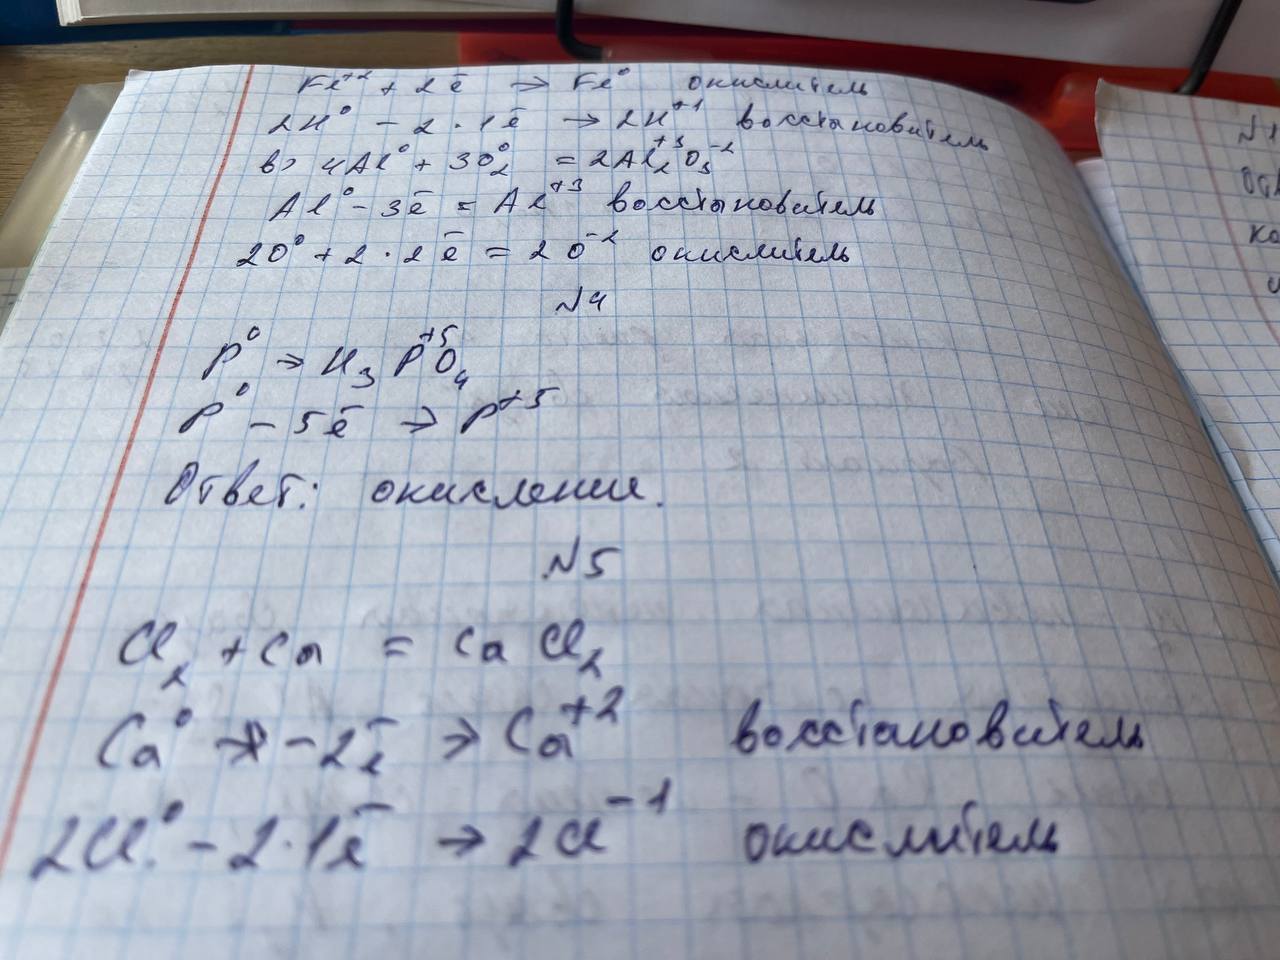 Fe⁺² + 2ē → Fe⁰ окислитель
2H⁰ - 2·1ē → 2H⁺¹ восстановитель
в) 4Al⁰ + 3O₂⁰ = 2Al₂⁺³O₃⁻²
Al⁰ - 3ē = Al⁺³ восстановитель
2O⁰ + 2·2ē = 2O⁻² окислитель
N4
P⁰ → H₃P⁺⁵O₄
P⁰ - 5ē → P⁺⁵
Ответ: окисление.
N5
Cl₂ + Ca = CaCl₂
Ca⁰ - 2ē → Ca⁺² восстановитель
2Cl⁰ - 2·1ē → 2Cl⁻¹ окислитель
N1